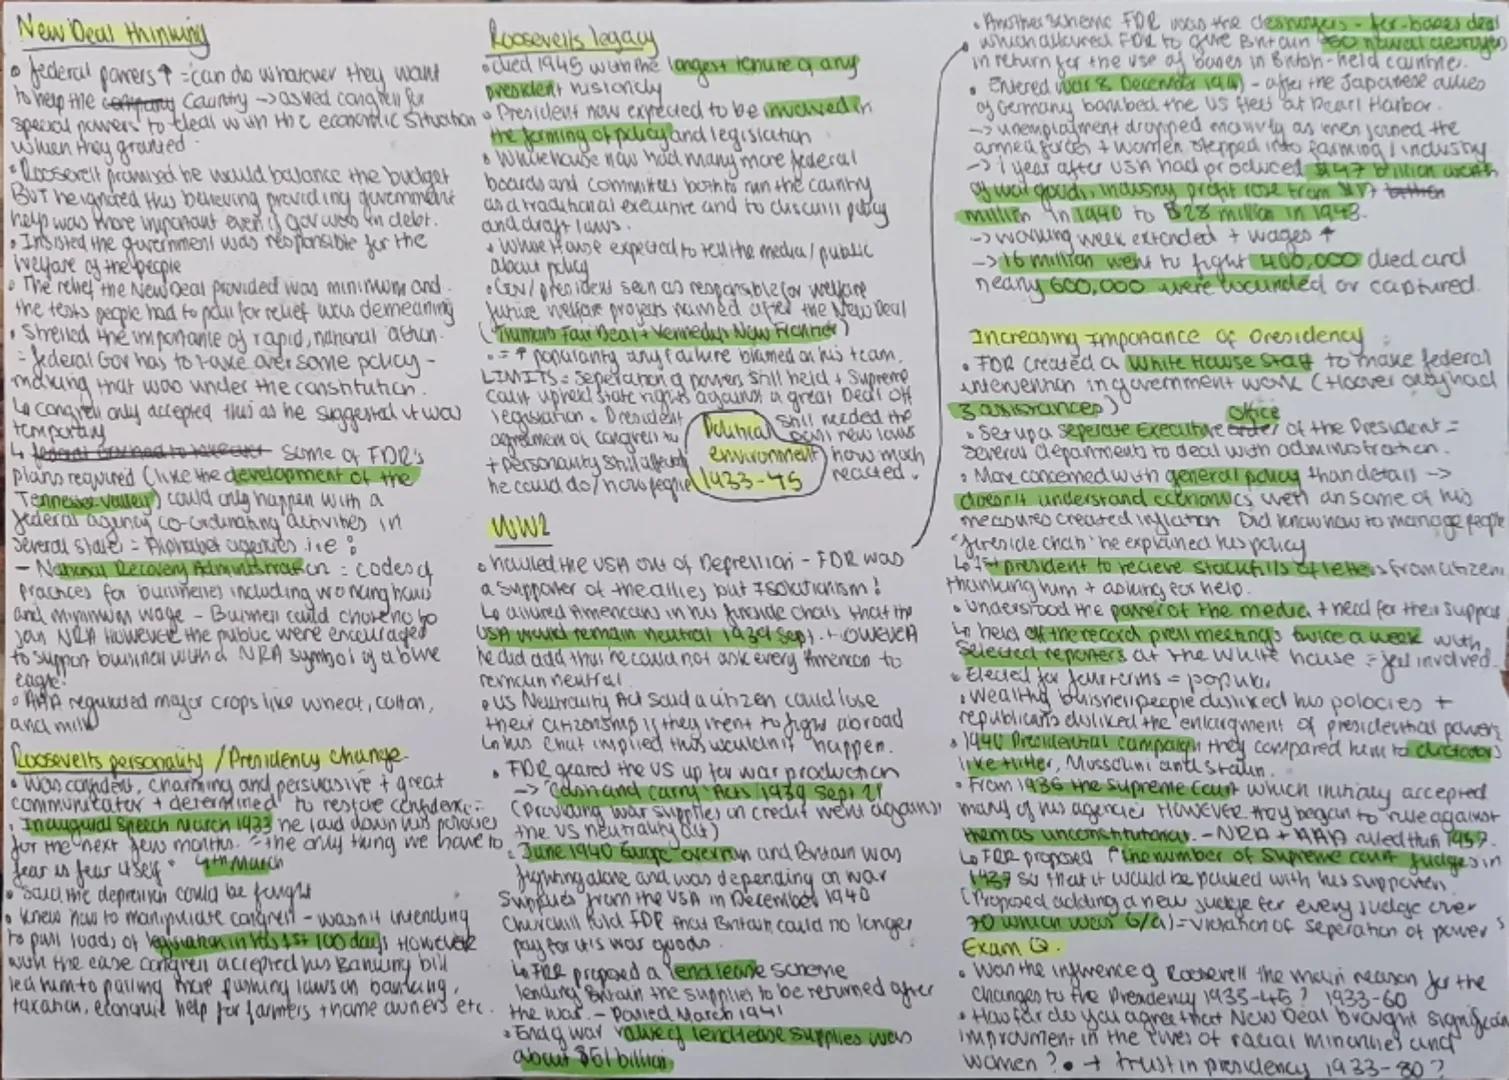 New Deal thinking
• federal powers ↑ = can do whatever they want
to help the company Country → asked congress for
special powers to deal with the economic situation
when they granted.
• Roosevelt promised he would balance the budget
BUT he ignored this believing providing government
help was more important even if gov was in debt.
• Insisted the government was responsible for the
welfare of the people
• The relief the New Deal provided was minimum and
the tests people had to pass for relief was demeaning
• Stressed the importance of rapid, national action.
= federal Gov has to take over some policy-
making that was under the constitution.
↳ congress only accepted this as he suggested it was
temporary
↳ Some of FDR's
plans required (like the development of the
Tennessee Valley) could only happen with a
federal agency co-ordinating activities in
several states = Alphabet agencies i.e :
- National Recovery Administration = codes of
practices for businesses including working hours
and minimum wage - Business could choose to
join NRA However the public were encouraged
to support business with a NRA symbol of a blue
eagle.
• AAA regulated major crops like wheat, cotton,
and milk
Roosevelts personality / Presidency change
• Was confident, charming and persuasive + great
communicator + determined to restore confidence =
• Inaugural speech March 1933 he laid down his policies
for the next few months. "the only thing we have to
fear is fear itself" 4th March
• Said the depression could be fought
• knew how to manipulate congress - wasn't intending
to pass loads of legislation in his 1st 100 days However
with the ease congress accepted his Banking bill
led him to passing more pushing laws on banking,
taxation, economic help for farmers + home owners etc.
Roosevelts legacy
• died 1945 with the longest tenure of any
president historicly
• President now expected to be involved in
the forming of policy and legislation
• White house now had many more federal
boards and committees both to run the country
as a traditional executive and to discuss policy
and draft laws.
• White House expected to tell the media / public
about policy
• Gov / president seen as responsible for welfare
future welfare projects named after the New Deal
(Trumans Fair Deal + Kennedys New Frontier)
• = ↑ popularity any failure blamed on his team.
LIMITS = Seperation of powers still held + Supreme
Court upheld state rights against a great Deal of
legislation. President still needed the
agreement of congress to pass new laws
+ personality still affected how much
he could do / how people reacted.
Political
environment
1933-45
WW2
• hauled the USA out of Depression - FDR was
a supporter of the allies but Isolationism!
↳ assured Americans in his fireside chats that the
USA would remain neutral 1939 Sept. HOWEVER
he did add that he could not ask every American to
remain neutral
• US Neutrality Act said a citizen could lose
their citizenship if they went to fight abroad
↳ his chat implied this wouldn't happen.
• FDR geared the US up for war production
→ 'Cash and Carry' Acts 1939 Sept 21
(Providing war supplies on credit went against
the US neutrality act)
• June 1940 Europe overrun and Britain was
fighting alone and was depending on war
supplies from the USA in December 1940
Churchill told FDR that Britain could no longer
pay for its war goods.
↳ FDR proposed a lend lease scheme
lending Britain the supplies to be returned after
the war. - Passed March 1941
• End of war value of lend lease supplies was
about $51 billion
• Another scheme FDR was the destroyers-for-bases deal
which allowed FDR to give Britain 50 naval destroyers
in return for the use of bases in British-held countries.
• Entered war 8 December 1941 - after the Japanese allies
of Germany bombed the US fleet at Pearl Harbor.
→ unemployment dropped majorly as men joined the
armed forces + women stepped into farming / industry
→ 1 year after USA had produced $47 billion worth
of war goods, industry profit rose from $17 billion
million in 1940 to $28 million in 1943.
→ working week extended + wages ↑
→ 16 million went to fight 400,000 died and
nearly 600,000 were wounded or captured.
Increasing Importance of Presidency
• FDR created a White House Staff to make federal
intervention in government work (Hoover only had
3 assistances)
• Set up a seperate Executive order Office of the President =
several departments to deal with administration.
• More concerned with general policy than details →
doesn't understand economics well an some of his
measures created inflation Did know how to manage people
• 'fireside chats' he explained his policy
↳ 1st president to recieve stackfills of letters from citizens
thanking him + asking for help.
• Understood the power of the media + need for their support
↳ held off the record press meetings twice a week with
selected reporters at the White house = feel involved.
• Elected for four terms = popular
• Wealthy buisness people disliked his polocies +
republicans disliked the enlargment of presidential powers
• 1940 Presidential campaign they compared him to dictators
like Hitler, Mussolini and Stalin.
• From 1936 the Supreme Court which initialy accepted
many of his agencies HOWEVER they began to rule against
them as unconstitutional. - NRA + AAA ruled this 1937.
↳ FDR proposed ↑ the number of Supreme court judges in
1937 so that it would be packed with his supporters
(Proposed adding a new judge for every judge over
70 which was 6/9) = violation of seperation of powers
Exam Q.
• Was the influence of Roosevelt the main reason for the
changes to the Presidency 1933-45? 1933-60
• How far do you agree that New Deal brought significan
improvment in the lives of racial minorities and
women? • + trust in presidency 1933-80?